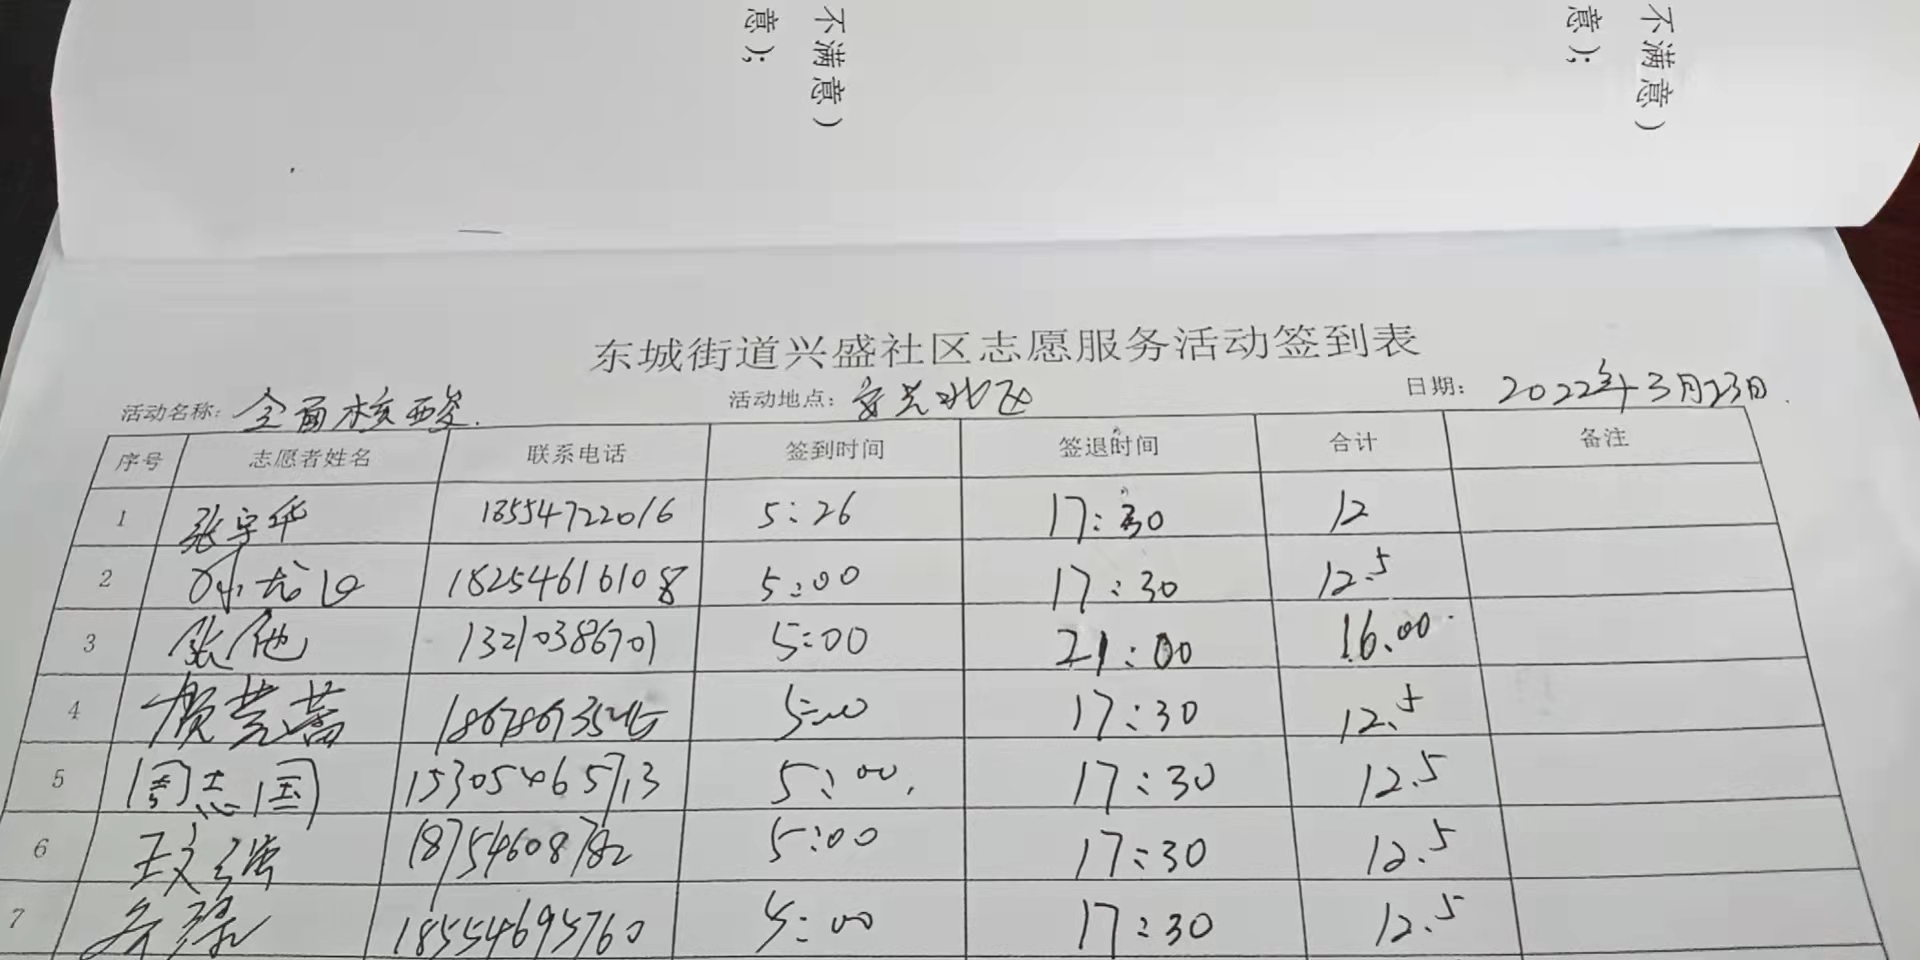 不满意）
意）；
不满意）
意）；
东城街道兴盛社区志愿服务活动签到表
活动名称： 全面核酸. 活动地点： 安兴北区 日期： 2022年3月23日.
序号 志愿者姓名 联系电话 签到时间 签退时间 合计 备注
1 张宇华 18554722016 5:26 17:30 12
2 18254616108 5:00 17:30 12.5
3 张伟 13210386701 5:00 21:00 16.00
4 5:00 17:30 12.5
5 周志国 15305465713 5:00. 17:30 12.5
6 王文强 18754608782 5:00 17:30 12.5
7 18554695760 5:00 17:30 12.5